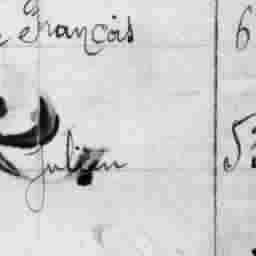 François 6
Julien